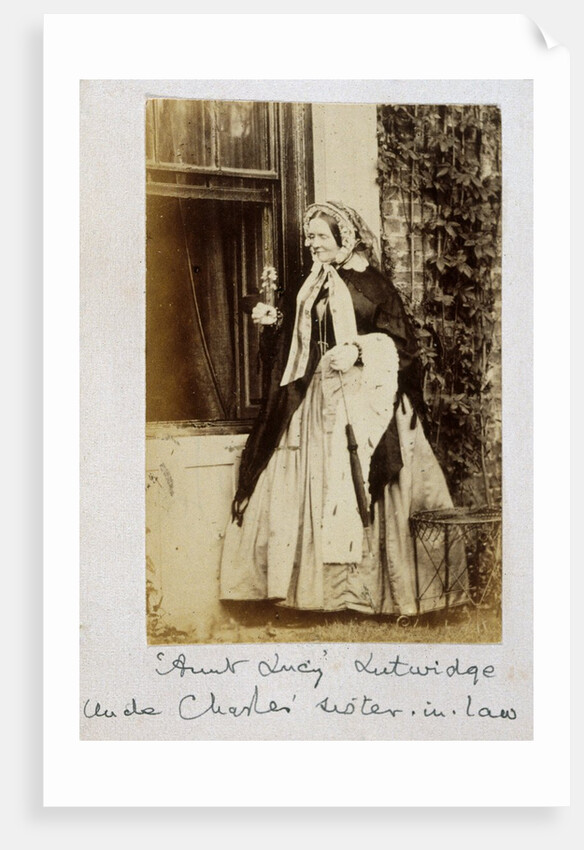 'Aunt Lucy' Lutwidge
Uncle Charles' sister-in-law